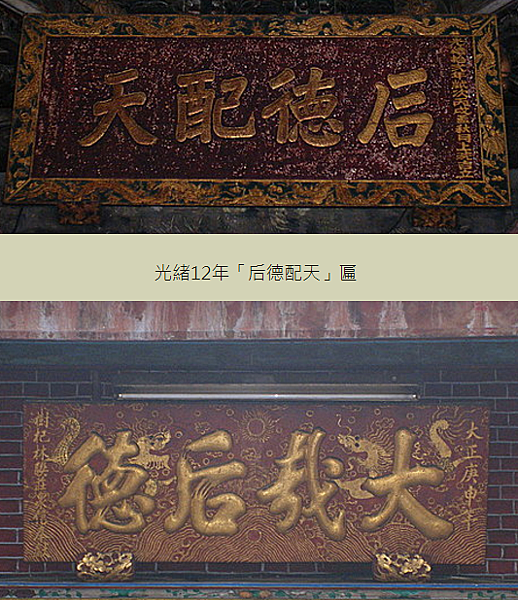 后德配天
光緒12年「后德配天」匾
大正庚申年
大哉后德
樹杞林